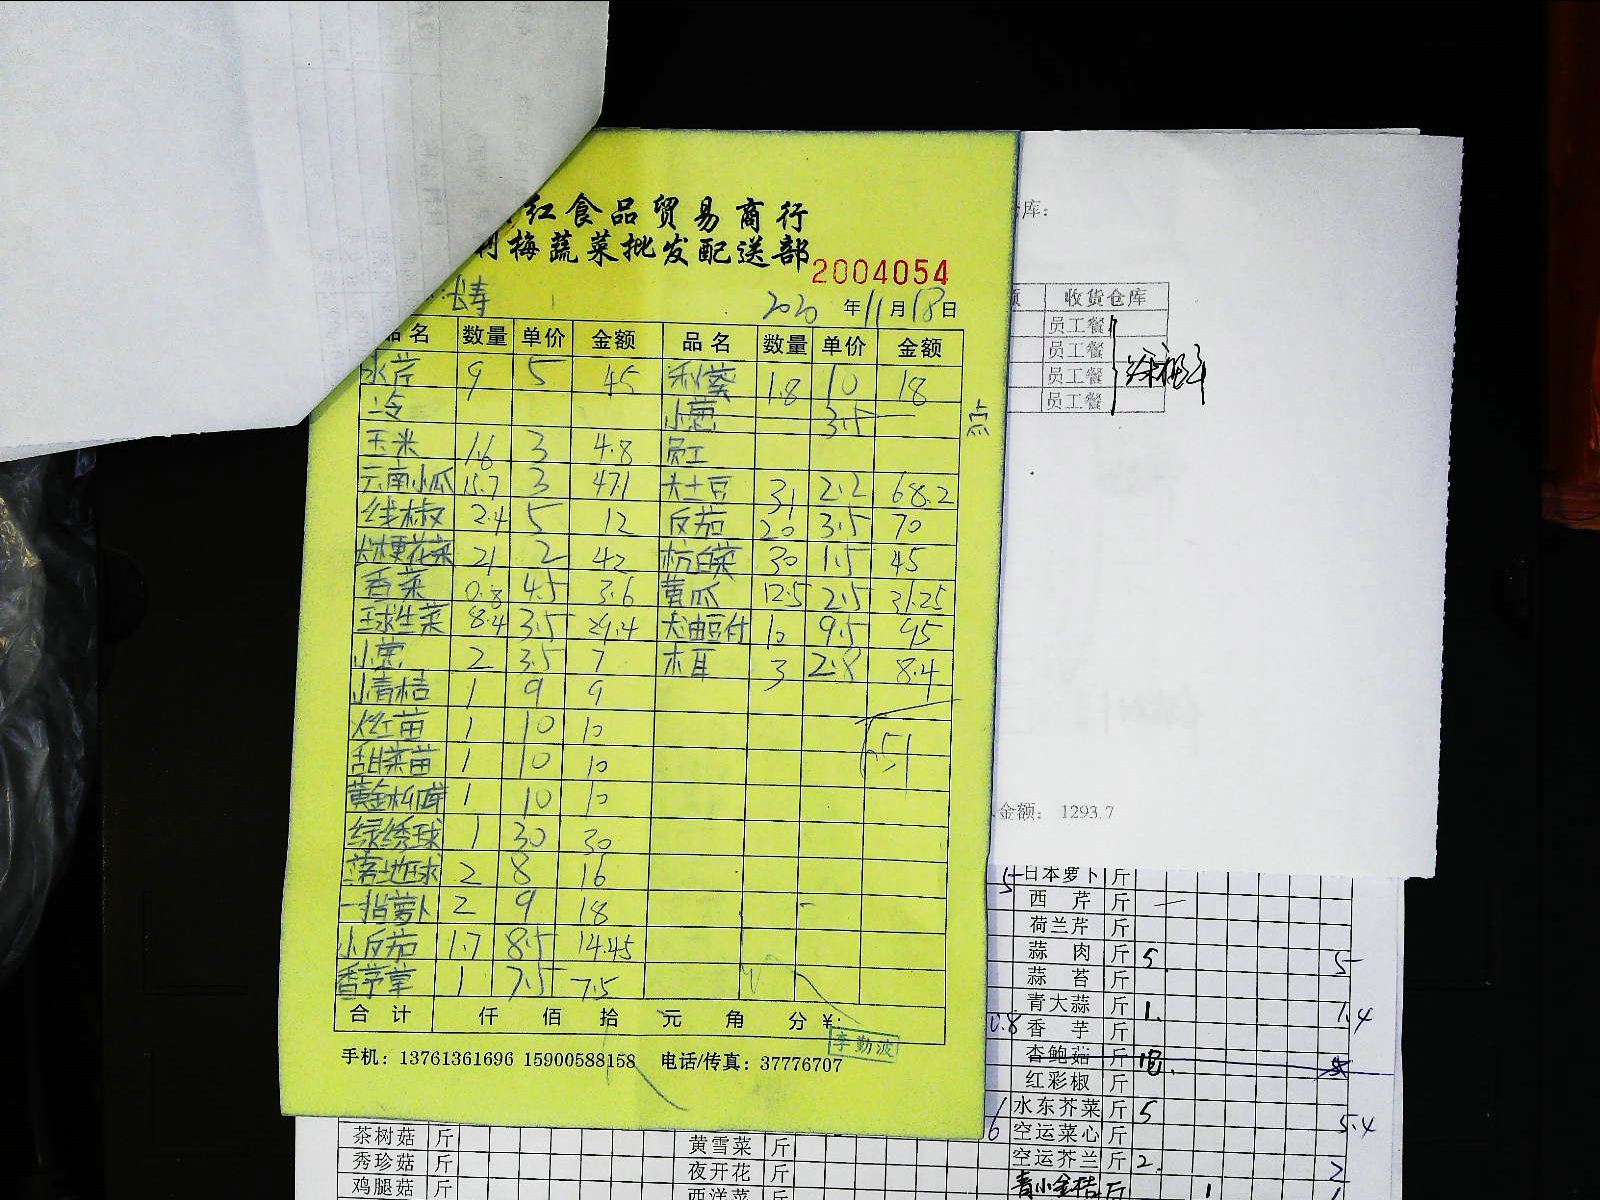 红食品贸易商行
利梅蔬菜批发配送部
2004054
2020年11月18日
品名 数量 单价 金额 品名 数量 单价 金额
水芹 9 5 45 秋葵 1.8 10 18
冷 小葱 3.5 —
点
玉米 1.6 3 4.8 员工
云南小瓜 15.7 3 47.1 大土豆 31 2.2 68.2
线椒 2.4 5 12 反茄 20 3.5 70
长梗花菜 21 2 42 杭白菜 30 1.5 45
香菜 0.8 4.5 3.6 黄瓜 12.5 2.5 31.25
球生菜 8.4 3.5 29.4 大油豆付 10 9.5 95
小葱 2 3.5 7 木耳 3 2.8 8.4
小青桔 1 9 9
火红苗 1 10 10
甜菜苗 1 10 10
黄金柳芽 1 10 10
651
绿绣球 1 30 30
落地球 2 8 16
一指萝卜 2 9 18
小反茄 1.7 8.5 14.45
香茅草 1 7.5 7.5
合计 仟 佰 拾 元 角 分 ¥:
李勤波
手机：13761361696 15900588158 电话/传真：37776707
库：
额 收货仓库
员工餐
员工餐
员工餐
员工餐
金额： 1293.7
5 日本萝卜 斤
西芹 斤 —
荷兰芹 斤
蒜肉 斤 5 5
蒜苔 斤
青大蒜 斤 1. 1.4
0.8 香芋 斤
杏鲍菇 斤
红彩椒 斤
水东芥菜 斤 5 5.4
6 空运菜心 斤
空运芥兰 斤 2. 2
青小金桔 斤 1 1
茶树菇 斤 黄雪菜 斤
秀珍菇 斤 夜开花 斤
鸡腿菇 斤 西洋菜 斤